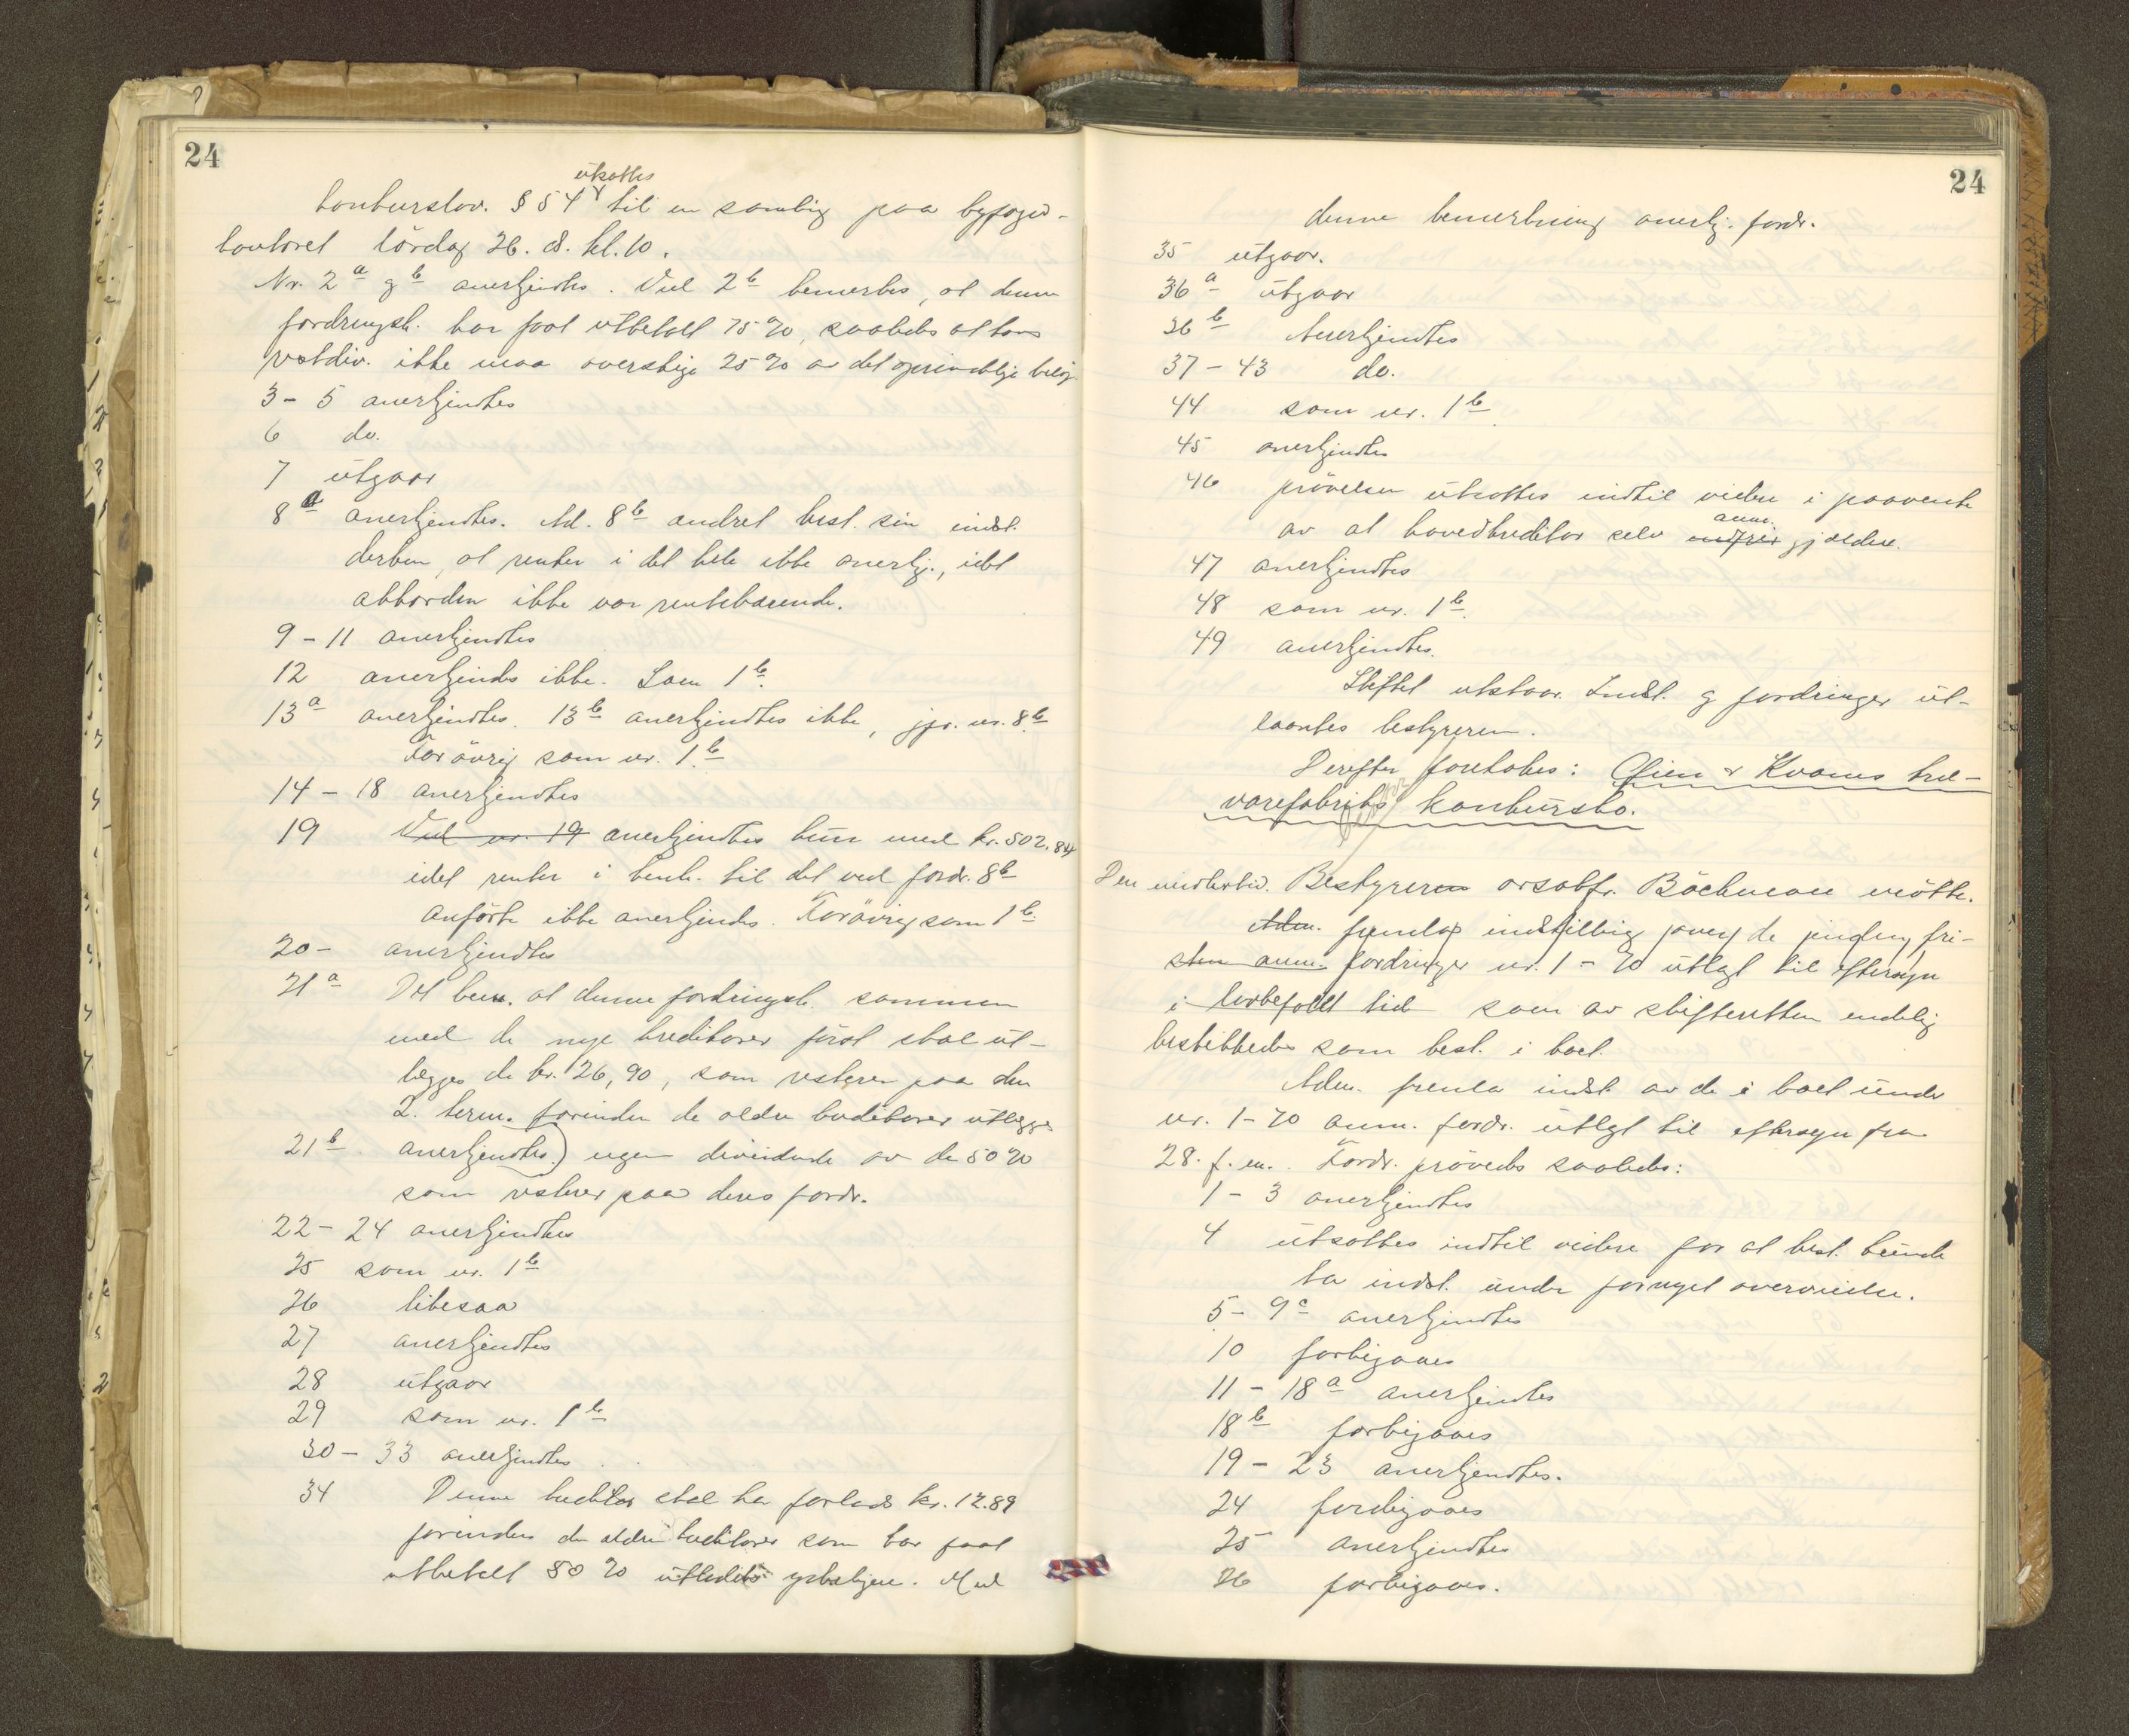 24
utsattes
konkurslov. § 54 til en samling paa byfoged-
kontoret lördag 26. d. kl. 10.
Nr. 2 a og b anerkjendtes. Ved 2 b bemerkes, at denne
fordringsh. har faat utbetalt 75 %, saaledes at hans
restdiv. ikke maa overstige 25 % av det oprindelige belöp
3 - 5 anerkjendtes
6 do.
7 utgaar
8 a anerkjendtes. Ad. 8 b ændret best. sin indst.
derhen, at renter i det hele ikke anerkj., idet
akkorden ikke var rentebærende.
9 - 11 anerkjendtes
12 anerkjendes ikke. Som 1 b.
13 a anerkjendtes. 13 b anerkjendtes ikke, jfr. nr. 8 b
Forövrig som nr. 1 b
14 - 18 anerkjendtes
19 Ved nr. 19 anerkjendtes kun med kr. 502.84
idet renter i henh. til det ved fordr. 8 b
anförte ikke anerkjendes. Forövrig som 1 b.
20 - anerkjendtes
21 a Det bem. at denne fordringsh. sammen
med de nye kreditorer först skal ut-
lægges de kr. 26,90, som resterer paa den
2. term. forinden de ældre kreditorer utlægges
21 b anerkjendtes.) nogen dividende av de 50 %
som resterer paa deres fordr.
22 - 24 anerkjendtes
25 som nr. 1 b
26 likesaa
27 anerkjendtes
28 utgaar
29 som nr. 1 b
30 - 33 anerkjendtes
34 Denne kreditor skal ha forlods kr. 12.89
forinden de ældre kreditorer som har faat
utbetalt 50 % utlodes yderligere. Med
24
denne bemerkning anerkj. fordr.
35 utgaar.
36 a utgaar
36 b Anerkjendtes
37 - 43 do.
44 som nr. 1 b
45 anerkjendtes
46 prövelsen utsattes indtil videre i paavente
anm.
av at hovedkreditor selv indfrir gjælden.
47 anerkjendtes
48 som nr. 1 b.
49 anerkjendtes.
Skiftet utstaar. Indst. og fordringer ut-
laantes bestyreren.
Derefter foretokes: Øien & Kvams træ-
varefabriks konkursbo.
Den midlertid. Bestyreren orsakfr. Bächman mötte.
Adm. fremlas indstilling over de inden fri-
sten anm. fordringer nr. 1 - 70 utlagt til eftersyn
i lovbefalt tid som av skifteretten endelig
beskikkedes som best. i boet.
Adm. fremla indst. av de i boet under
nr. 1 - 70 anm. fordr. utlagt til eftersyn fra
28. f. m. Fordr. prövedes saaledes:
1 - 3 anerkjendtes
4 utsattes indtil videre for at best. kunde
ta indst. under fornyet overveielse.
5 - 9 c anerkjendtes
10 forbigaaes
11 - 18 a anerkjendtes
18 b forbigaaes
19 - 23 anerkjendtes.
24 forbigaaes
25 anerkjendtes
26 forbigaaes.